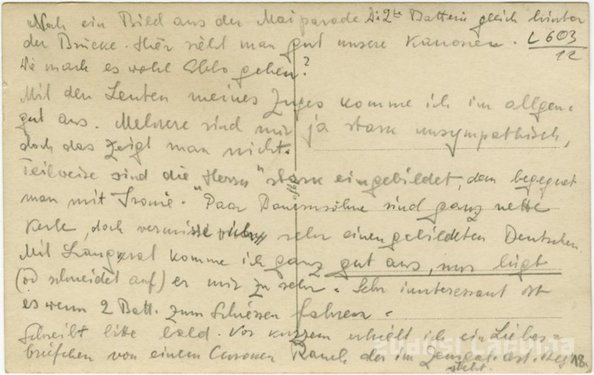 Noch ein Bild aus der Maiparade Di. 2te Batterie gleich hinter
der Brücke. Hier sieht man gut unsere Kanonen. L 603/12
Wie mach es wohl gehen?
Mit den Leuten meines Zuges komme ich im allgem.
gut aus. Mehrere sind mir ja stark unsympathisch,
doch das zeigt man nicht.
Teilweise sind die Herrn stark eingebildet, dem begegnet
man mit Ironie. Paar Bauernsöhne sind ganz nette
Kerle, doch vermisse sehr einen gebildeten Deutschen
Mit komme ich ganz gut aus, nur lügt
(od schneidet auf) er mir zu sehr. Sehr interressant ist
es wenn 2 Batt. zum Schiessen fahren.
Schreibt bitte bald. Vor kurzem erhielt ich ein Liebes-
briefchen von einem der im
steht.